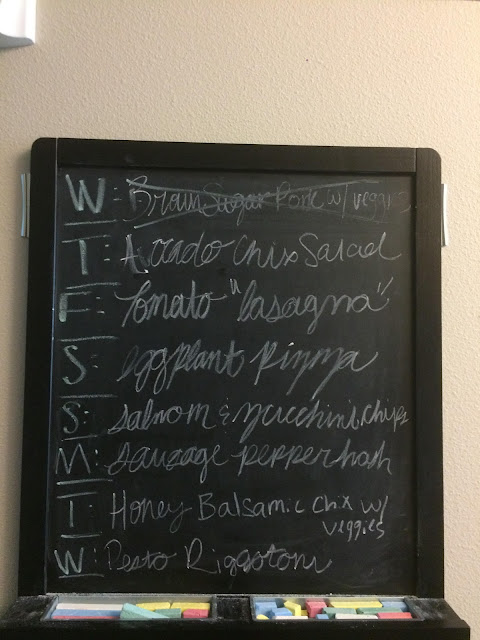 W: Brown Sugar Pork w/ veggies
T: Avocado Chix Salad
F: Tomato "lasagna"
S: eggplant pizza
S: salmom & zucchini chips
M: sausage pepper hash
T: Honey Balsamic Chix w/
veggies
W: Pesto Riggotoni